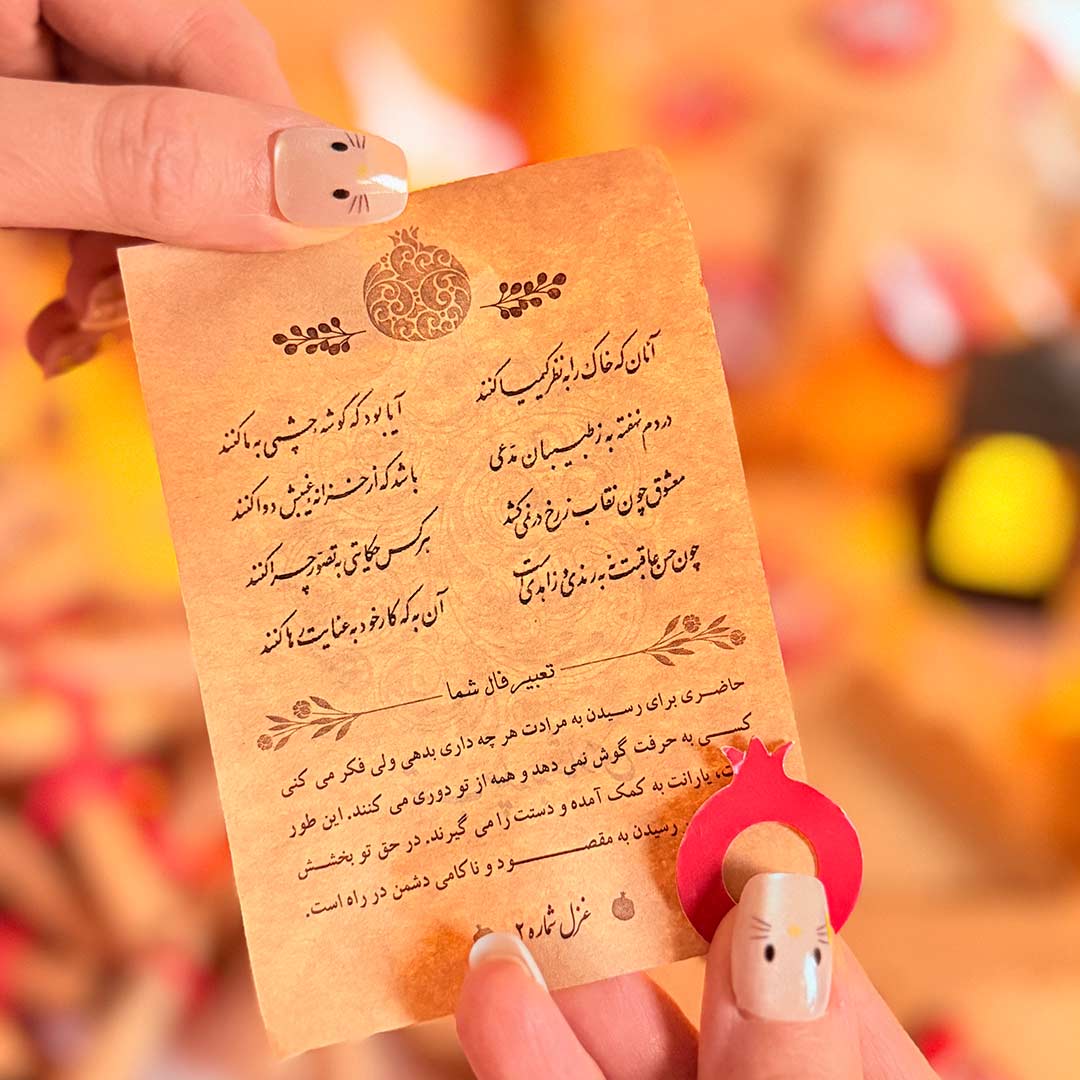 آنان که خاک را به نظر کیمیا کنند
آیا بود که گوشه چشمی به ما کنند
دردم نهفته به ز طبیبان مدعی
باشد که از خزانه غیبش دوا کنند
معشوق چون نقاب ز رخ در نمی کشد
هر کس حکایتی به تصور چرا کنند
چون حسن عاقبت نه به رندی و زاهدی است
آن به که کار خود به عنایت رها کنند
تعبیر فال شما
حاضری برای رسیدن به مرادت هر چه داری بدهی ولی فکر می کنی
کسی به حرفت گوش نمی دهد و همه از تو دوری می کنند. این طور
یارانت به کمک آمده و دستت را می گیرند. در حق تو بخشش
رسیدن به مقصود و ناکامی دشمن در راه است.
غزل شماره ۲